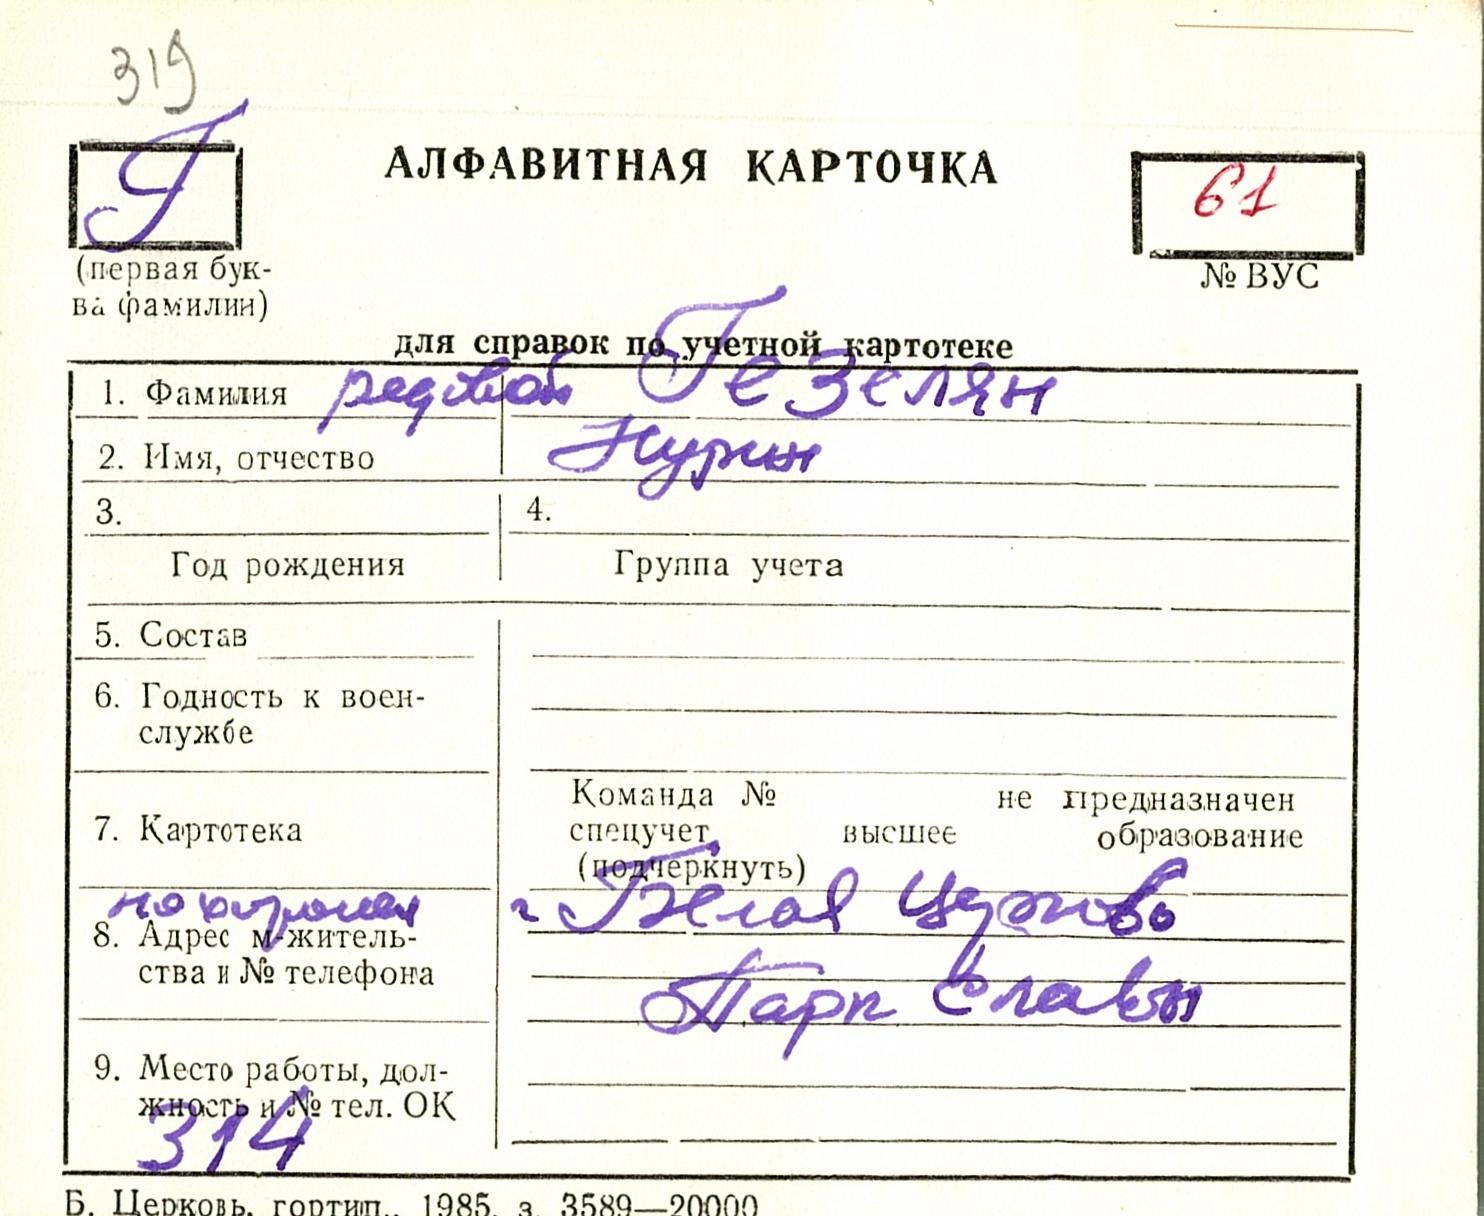 319
Г
АЛФАВИТНАЯ КАРТОЧКА
61
(первая бук-
ва фамилии)
№ ВУС
для справок по учетной картотеке
1. Фамилия рядовой Гезелян
2. Имя, отчество Нурин
3. 4.
Год рождения Группа учета
5. Состав
6. Годность к воен-
службе
7. Картотека
Команда № не предназначен
спецучет высшее образование
(подчеркнуть)
похоронен г Белая Церковь
8. Адрес м-житель-
ства и № телефона
Парк Славы
9. Место работы, дол-
жность и № тел. ОК
314
Б. Церковь, гортип., 1985, з. 3589—20000